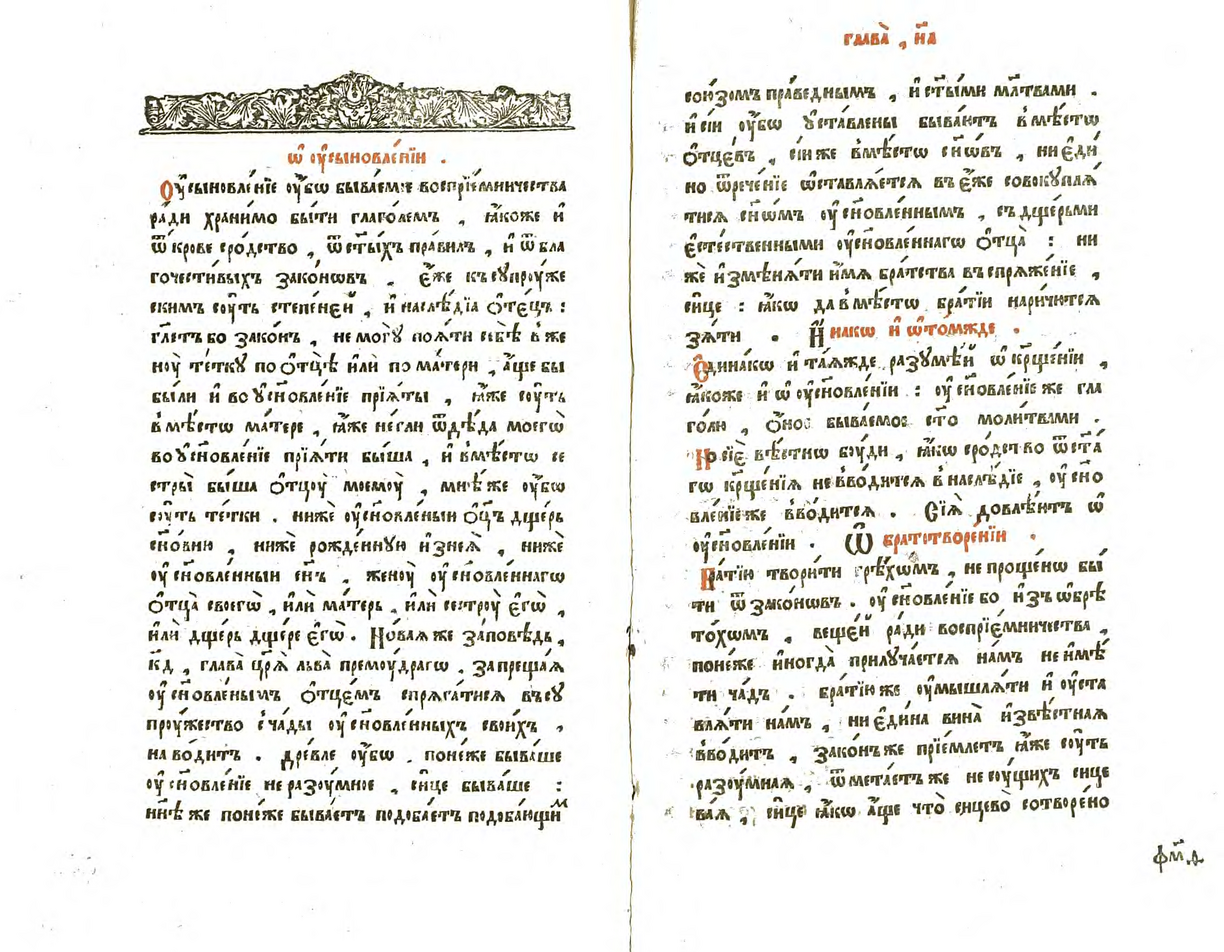 ѡ҆ ᲂу҆сыновле́нїи .
Оу҆сыновле́нїе ᲂу҆́бѡ быва́емꙋе воспрїе́мничества
ра́ди храни́мо бы́ти глаго́лемъ , ꙗ҆́коже и҆
ѿ кро́ве сро́дство , ѿ ст҃ы́хъ пра́вилъ , и҆ ѿ бла
гочести́выхъ зако́нѡвъ . є҆́же къ сꙋпроу́же
скимъ сꙋ́ть степе́ней , и҆ наслѣ́дїа ѻ҆те́цъ :
гл҃етъ бо зако́нъ , не могꙋ̀ поѧ́ти себѣ̀ в же
нꙋ̀ те́ткꙋ по ѻ҆тцѣ̀ и҆лѝ по ма́тери , а҆́ще бы
бы́ли и҆ во ᲂу҆сн҃овле́нїе прїѧ́ты , ꙗ҆́же сꙋ́ть
вмѣ́стѡ ма́тере , ꙗ҆́же не гли ѿ дѣ́да моегѡ̀
во ᲂу҆сн҃овле́нїе прїѧ́ти бы́ша , и҆ вмѣ́стѡ се
стры̀ бы́ша ѻ҆тцꙋ̀ моемꙋ̀ , мнѣ́ же ᲂу҆́бѡ
сꙋ́ть те́тки . ниже́ ᲂу҆сн҃овле́ныи ѻ҆ц҃ъ дще́рь
сн҃овню , нижѐ рожде́ннꙋю и҆з неѧ̀ , нижѐ
ᲂу҆сн҃овле́нныи сн҃ъ , женꙋ̀ ᲂу҆сн҃овле́ннагѡ
ѻ҆тца̀ своегѡ̀ , и҆лѝ ма́терь , и҆лѝ сестрꙋ̀ є҆гѡ̀ ,
и҆лѝ дще́рь дще́ре є҆гѡ̀ . Но́ваѧ же за́повѣдь ,
к҃д , глава̀ цр҃ѧ̀ льва̀ премꙋ́драгѡ , запреща́ѧ
ᲂу҆сн҃овле́нымъ ѻ҆тце́мъ спрѧга́тисѧ въ сꙋ
проу́жество с ча́ды ᲂу҆сн҃овле́нныхъ свои́хъ ,
на во́дитъ . дре́вле ᲂу҆́бѡ . поне́же быва́ше
ᲂу҆сн҃овле́нїе не разꙋ́мное , си́це быва́ше :
нн҃ѣ же поне́же быва́етъ подоба́етъ подоба́ющим
глава̀ , н҃а
сою́зомъ пра́веднымъ , и҆ ст҃ы́ми мл҃твами .
и҆ сїи ᲂу҆́бѡ ᲂу҆ста́влены быва́ютъ вмѣ́стѡ
ѻ҆тце́въ , сїи же вмѣ́стѡ сн҃ѡ́въ , ни є҆ди́
но ѿрече́нїе ѡ҆ставлѧ́етсѧ въ є҆́же совокꙋплѧ́
тисѧ сн҃ѡ́мъ ᲂу҆сн҃овле́ннымъ , съ дще́рьми
є҆сте́ственными ᲂу҆сн҃овле́ннагѡ ѻ҆тца̀ : ни
жѐ и҆змѣнѧ́ти и҆́мѧ бра́тства въ спрѧже́нїе ,
си́це : ꙗ҆́кѡ да вмѣ́стѡ бра́тїи нарича́тсѧ
зѧ́ти . И҆на́кѡ и҆ ѡ҆ то́мжде .
Є҆дина́кѡ и҆ та́ѧжде разꙋмѣ́й ѡ҆ кр҃ще́нїи ,
ꙗ҆́коже и҆ ѡ҆ ᲂу҆сн҃овле́нїи : ᲂу҆сн҃овле́нїе же гла
го́лю , ѻ҆́ное быва́емое с҃то моли́твами .
Но сїѐ вѣ́стнѡ бꙋ́ди , ꙗ҆́кѡ сро́дство ѿ ст҃а́
гѡ кр҃ще́нїѧ не вво́дитсѧ в наслѣ́дїе , ᲂу҆сн҃о
вле́нїе же вво́дитсѧ . Сїѧ̀ довлѣ́ютъ ѡ҆
ᲂу҆сн҃овле́нїи . Ѡ҆ братотворе́нїи .
Бра́тїю твори́ти грѣ́хѡмъ , не проще́нѡ бы́
ти ѿ зако́нѡвъ . ᲂу҆сн҃овле́нїе бо и҆зъ ѡ҆брѣ
то́хѡмъ , веще́й ра́ди воспрїе́мничества ,
поне́же и҆ногда̀ прилꙋча́етсѧ на́мъ не и҆мѣ́
ти ча́дъ . бра́тїю же ᲂу҆мышлѧ́ти и҆ ᲂу҆ста
влѧ́ти на́мъ , ни є҆ди́на вина̀ и҆звѣ́стнаѧ
вво́дитъ , зако́нъ же прїе́млетъ ꙗ҆́же сꙋ́ть
разꙋ́мнаѧ , ѿмета́етъ же не сꙋ́щихъ си́це
ваѧ̀ , си́це ꙗ҆́кѡ а҆́ще что̀ сицево̀ сотворе́но
фм҃д